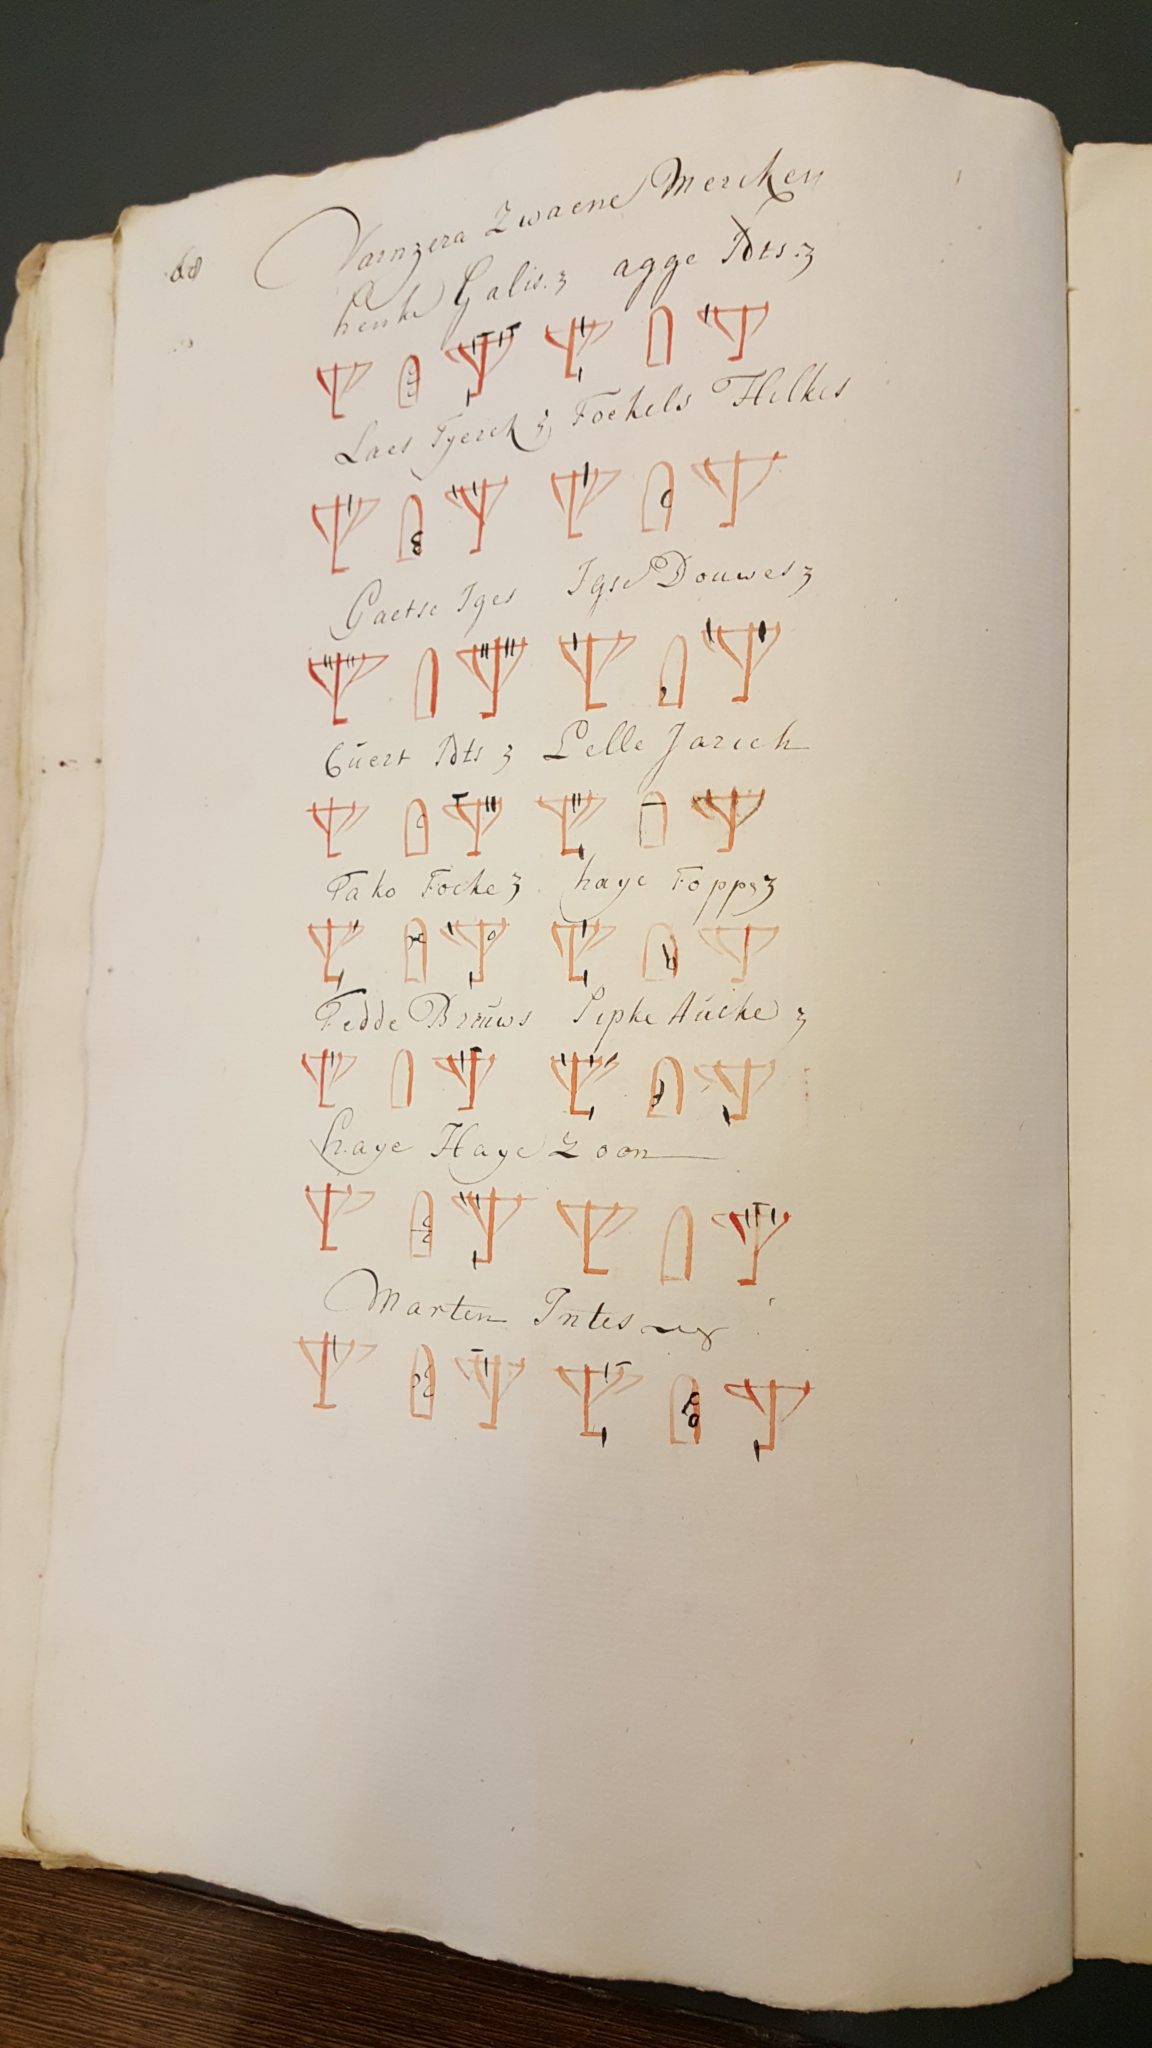 68
Varnzera Zwaene Mercken
henke Galis.z agge Pdts.z
Laes Tjerck z Fockels Hilkes
Gaetse Iges Igse Douwes z
Guert Pdts z Pelle Jarich
Tako Focke z haye Fopps z
Fedde Broúws Sipke Aúcke z
haye Haye Zoon
Marten Intes